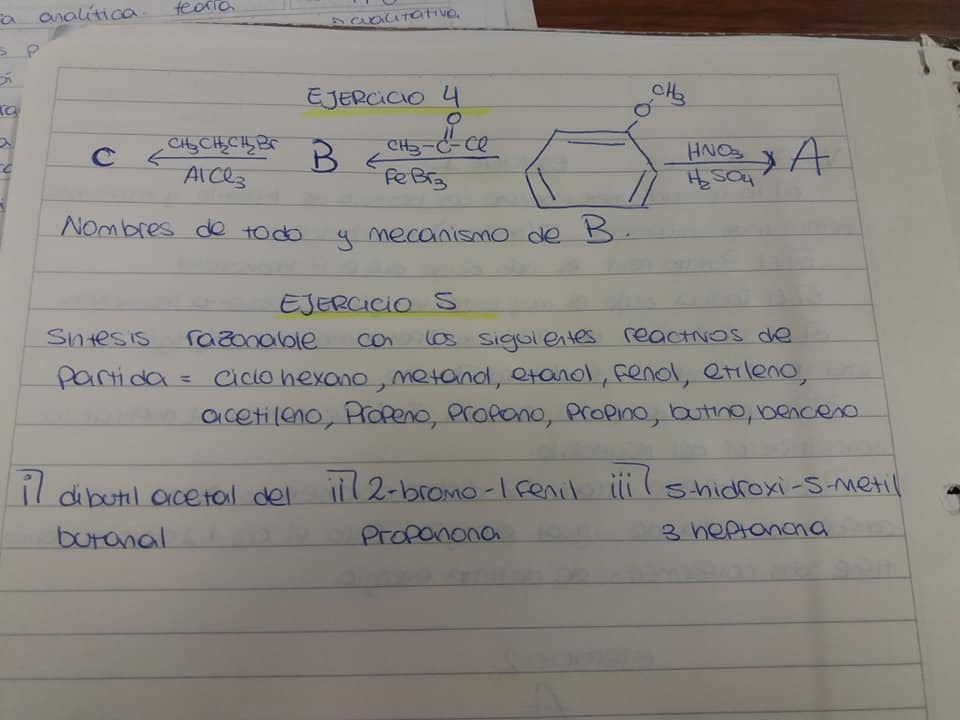 a analítica. teoría
cualitativa.
EJERCICIO 4
CH3
O
O
C CH3CH2CH2Br B CH3-C-Cl HNO3 A
AlCl3 FeBr3 H2SO4
Nombres de todo y mecanismo de B.
EJERCICIO 5
Sintesis razonable con los siguientes reactivos de
partida = ciclohexano, metanol, etanol, fenol, etileno,
acetileno, Propeno, propano, propino, butino, benceno
i) dibutil acetal del ii) 2-bromo-1 fenil iii) 5-hidroxi-5-metil
butanal propanona 3 heptanona